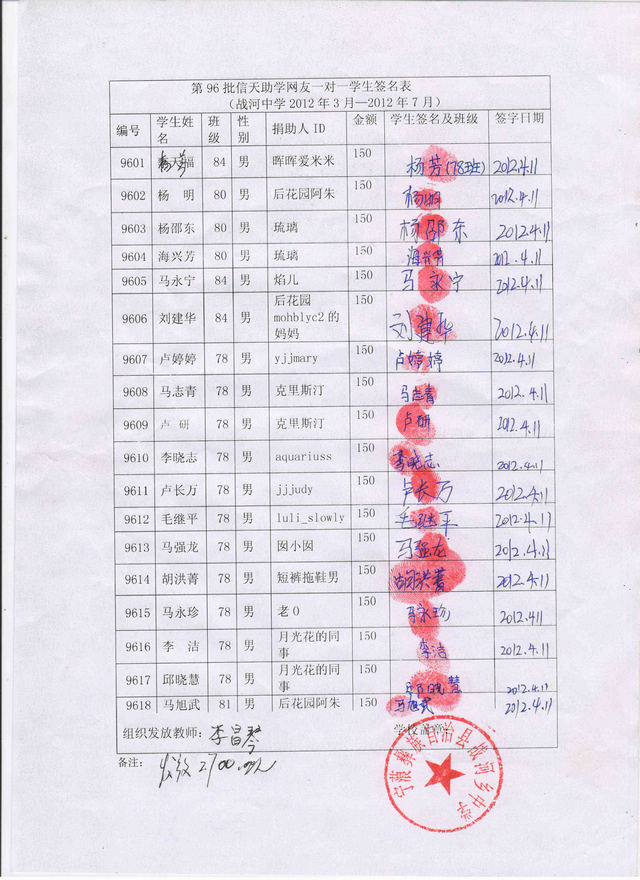 第96批信天助学网友一对一学生签名表
（战河中学2012年3月—2012年7月）
编号 学生姓名 班级 性别 捐助人ID 金额 学生签名及班级 签字日期
9601 杨芳 84 男 晖晖爱米米 150 杨芳(78班) 2012.4.11
9602 杨 明 80 男 后花园阿朱 150 2012.4.11
9603 杨邵东 80 男 琉璃 150 杨邵东 2012.4.11
9604 海兴芳 80 男 琉璃 150 海兴芳 2012.4.11
9605 马永宁 84 男 焰儿 150 马永宁 2012.4.11
9606 刘建华 84 男 后花园mohblyc2的妈妈 150 刘建华 2012.4.11
9607 卢婷婷 78 男 yjjmary 150 卢婷婷 2012.4.11
9608 马志青 78 男 克里斯汀 150 马志青 2012.4.11
9609 卢 研 78 男 克里斯汀 150 卢研 2012.4.11
9610 李晓志 78 男 aquariuss 150 李晓志 2012.4.11
9611 卢长万 78 男 jjjudy 150 卢长万 2012.4.11
9612 毛继平 78 男 luli_slowly 150 毛继平 2012.4.11
9613 马强龙 78 男 囡小囡 150 马强龙 2012.4.11
9614 胡洪菁 78 男 短裤拖鞋男 150 胡洪菁 2012.4.11
9615 马永珍 78 男 老0 150 马永珍 2012.411
9616 李 洁 78 男 月光花的同事 150 李洁 2012.4.11
9617 邱晓慧 78 男 月光花的同事 150 邱晓慧 2012.4.11
9618 马旭武 81 男 后花园阿朱 150 马旭武 2012.4.11
组织发放教师：李昌琴 学校盖章：
备注： 实发2700.00元
宁蒗彝族自治县战河乡中学